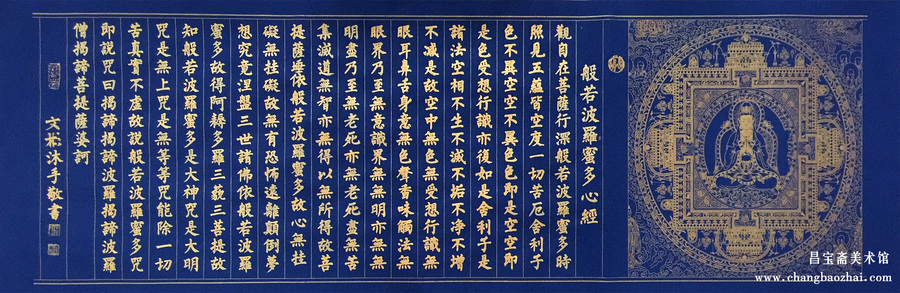 般若波羅蜜多心經
觀自在菩薩行深般若波羅蜜多時
照見五蘊皆空度一切苦厄舍利子
色不異空空不異色色即是空空即
是色受想行識亦復如是舍利子是
諸法空相不生不滅不垢不净不增
不減是故空中無色無受想行識無
眼耳鼻舌身意無色聲香味觸法無
眼界乃至無意識界無無明亦無無
明盡乃至無老死亦無老死盡無苦
集滅道無智亦無得以無所得故菩
提薩埵依般若波羅蜜多故心無挂
礙無挂礙故無有恐怖遠離顛倒夢
想究竟涅盤三世諸佛依般若波羅
蜜多故得阿耨多羅三藐三菩提故
知般若波羅蜜多是大神咒是大明
咒是無上咒是無等等咒能除一切
苦真實不虛故說般若波羅蜜多咒
即說咒曰揭諦揭諦波羅揭諦波羅
僧揭諦菩提薩婆訶
文彬沐手敬書
昌宝斋美术馆
www.changbaozhai.com